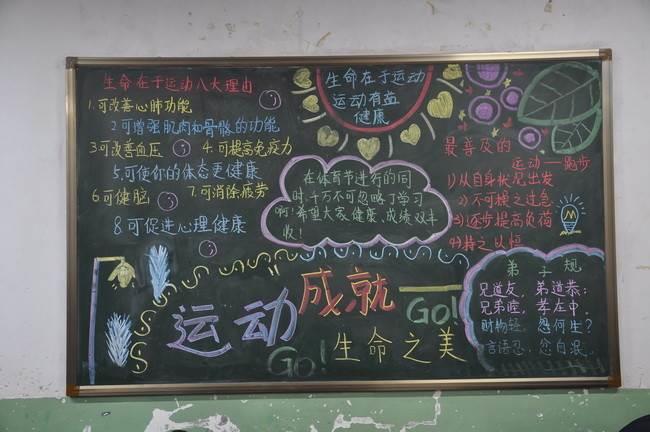 生命在于运动八大理由
1.可改善心肺功能
2可增强肌肉和骨骼的功能
3可改善血压
4.可提高免疫力
5.可使你的体态更健康
6可健脑
7.可消除疲劳
8可促进心理健康
生命在于运动
运动有益
健康
在体育节进行的同
时,千万不可忽略了学习
啊!希望大家健康、成绩双丰
收!
最普及的
运动——跑步
1)从自身状况出发
2)不可操之过急
3)逐步提高负荷
4)持之以恒
运动
成就
生命之美
GO!
GO!
弟子规
兄道友,弟道恭;
兄弟睦,孝在中;
财物轻,怨何生?
言语忍,忿自泯。